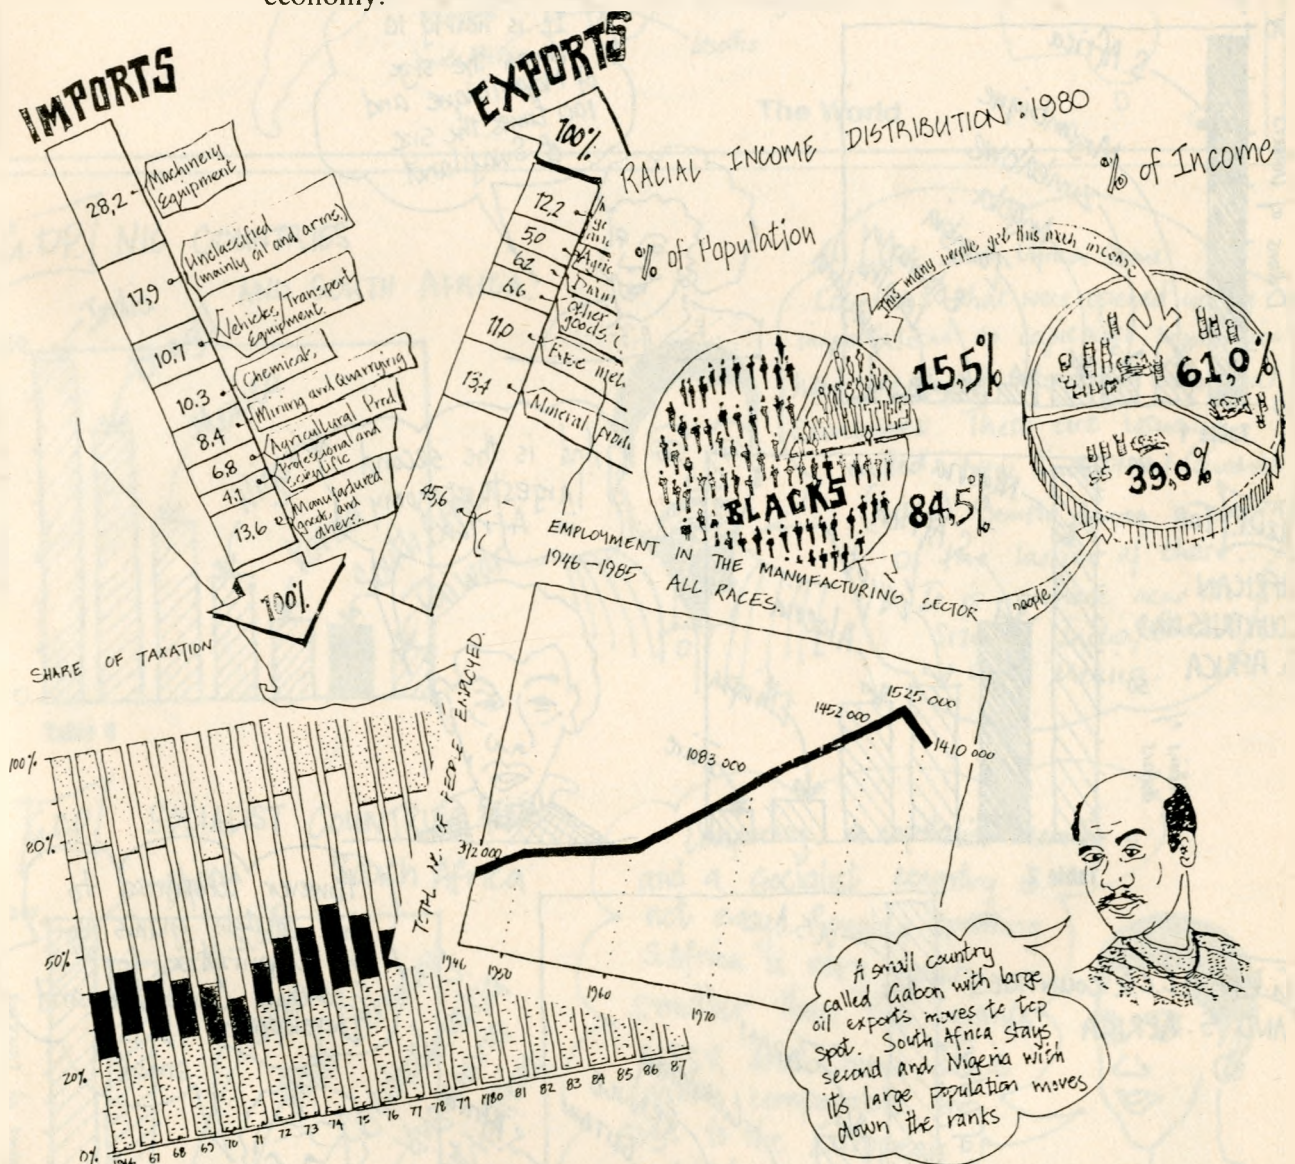 economy.
IMPORTS
28,2
Machinery
Equipment
17,9
Unclassified
(mainly oil and arms.)
10.7
Vehicles/Transport
Equipment.
10.3
Chemicals,
8.4
Mining and Quarrying
6.8
Agricultural Prod
4.1
Professional and
13.6
Manufactured
goods, and
others.
100%
EXPORTS
100%
12,2
5,0
6,2
6,6
Other
goods.
11,0
13,4
Mineral prod
45,6
RACIAL INCOME DISTRIBUTION: 1980
% of Population
% of Income
This many people get this much income
WHITES
15,5%
BLACKS
84,5%
61,0%
39,0%
people
EMPLOYMENT IN THE MANUFACTURING SECTOR
1946-1985
ALL RACES.
TOTAL OF PEOPLE EMPLOYED.
1083 000
1452 000
1525 000
1410 000
1946
1950
1960
1970
SHARE OF TAXATION
100%
80%
50%
20%
0%
67 68 69 70 71 72 73 74 75 76 77 78 79 1980 81 82 83 84 85 86 87
A small country
called Gabon with large
oil exports moves to top
spot. South Africa stays
second and Nigeria with
its large population moves
down the ranks